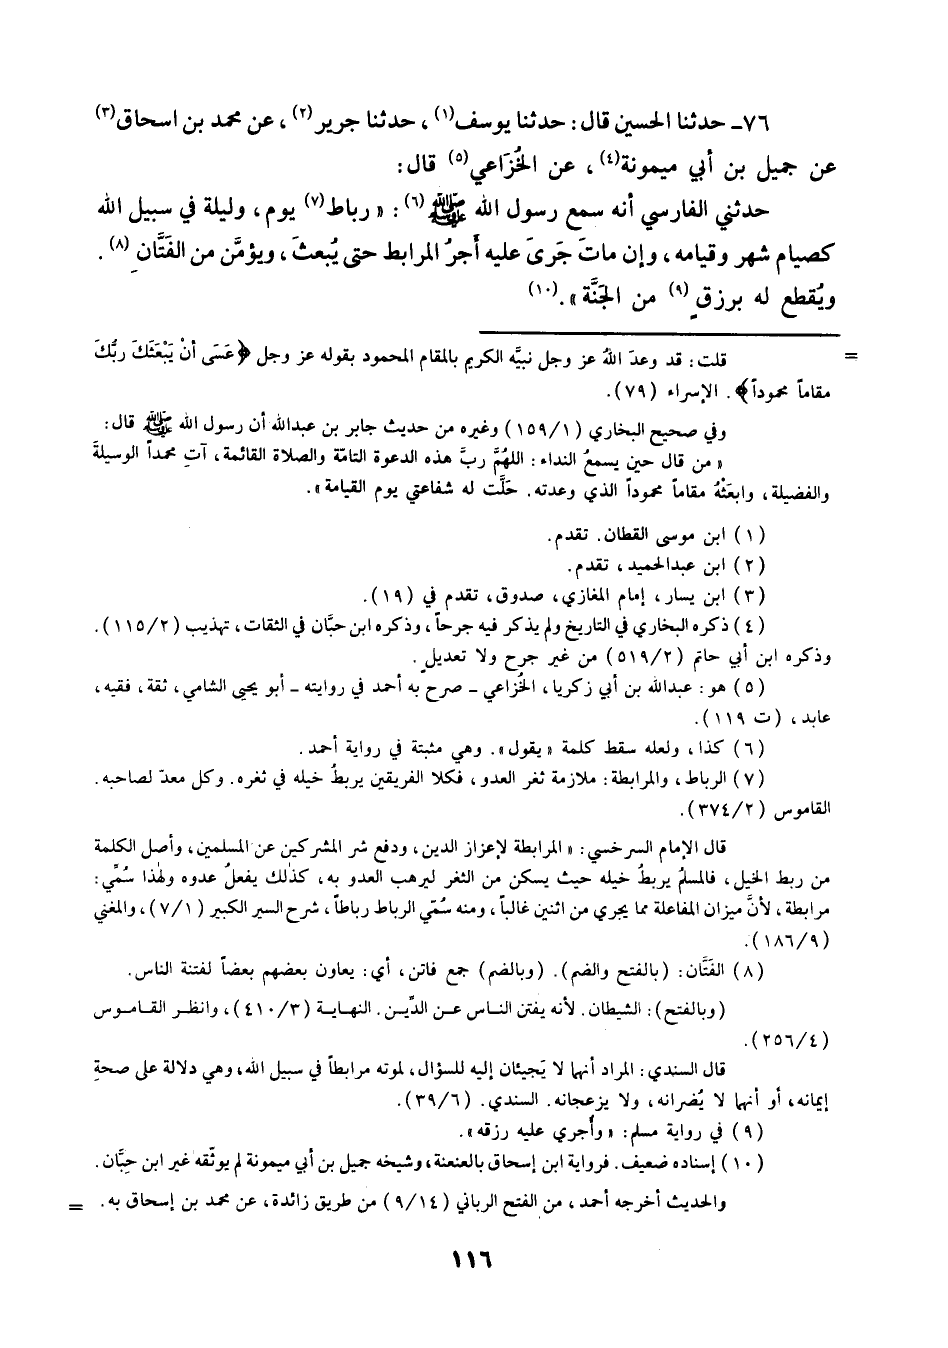 ٧٦- حدثنا الحسين قال : حدثنا يوسف(١) ، حدثنا جرير(٢) ، عن محمد بن اسحاق(٣)
عن جميل بن أبي ميمونة(٤) ، عن الخُزَاعي(٥) قال :
حدثني الفارسي أنه سمع رسول الله ﷺ(٦) : « رباط(٧) يوم ، وليلة في سبيل الله
كصيام شهر وقيامه ، وإن ماتَ جَرىَ عليه أَجرُ المرابط حتى يُبعثَ ، ويؤمَّن من الفَتَّانِ(٨) .
ويُقطع له برزقٍ(٩) من الجَنَّة » .(١٠)
= قلت : قد وعدَ اللهُ عز وجل نبيَّه الكريم بالمقام المحمود بقوله عز وجل ﴿عَسَى أنْ يَبْعَثَكَ ربُّكَ
مقاماً محموداً﴾ . الإسراء (٧٩) .
وفي صحيح البخاري (١/١٥٩) وغيره من حديث جابر بن عبدالله أن رسول الله ﷺ قال :
« من قال حين يسمعُ النداء : اللهُمَّ ربَّ هذه الدعوة التامّة والصلاة القائمة ، آتِ محمداً الوسيلةَ
والفضيلة ، وابعَثْهُ مقاماً محموداً الذي وعدته . حَلَّت له شفاعتي يوم القيامة » .
(١) ابن موسى القطان . تقدم .
(٢) ابن عبدالحميد ، تقدم .
(٣) ابن يسار ، إمام المغازي ، صدوق ، تقدم في (١٩) .
(٤) ذكره البخاري في التاريخ ولم يذكر فيه جرحاً ، وذكره ابن حبَّان في الثقات ، تهذيب (٢/١١٥) .
وذكره ابن أبي حاتم (٢/٥١٩) من غير جرح ولا تعديلٍ .
(٥) هو : عبدالله بن أبي زكريا ، الخُزاعي - صرح به أحمد في روايته - أبو يحيى الشامي ، ثقة ، فقيه ،
عابد ، (ت ١١٩) .
(٦) كذا ، ولعله سقط كلمة « يقول » . وهي مثبتة في رواية أحمد .
(٧) الرباط ، والمرابطة : ملازمة ثغر العدو ، فكلا الفريقين يربطُ خيله في ثغره . وكل معدّ لصاحبه .
القاموس (٢/٣٧٤) .
قال الإمام السرخسي : « المرابطة لإعزاز الدين ، ودفع شر المشركين عن المسلمين ، وأصل الكلمة
من ربط الخيل ، فالمسلمُ يربطُ خيله حيث يسكن من الثغر ليرهب العدو به ، كذلك يفعلُ عدوه ولهذا سُمِّي :
مرابطة ، لأنَّ ميزان المفاعلة مما يجري من اثنين غالباً ، ومنه سُمّي الرباط رباطاً ، شرح السير الكبير (١/٧) ، والمغني
(٩/١٨٦) .
(٨) الفَتَّان : (بالفتح والضم) . (وبالضم) جمع فاتن ، أي : يعاون بعضهم بعضاً لفتنة الناس .
(وبالفتح) : الشيطان . لأنه يفتن الناس عن الدِّين . النهاية (٣/٤١٠) ، وانظر القاموس
(٤/٢٥٦) .
قال السندي : المراد أنهما لا يَجيئان إليه للسؤال ، لموته مرابطاً في سبيل الله ، وهي دلالة على صحةِ
إيمانه ، أو أنهما لا يُضرانه ، ولا يزعجانه . السندي . (٦/٣٩) .
(٩) في رواية مسلم : « وأُجري عليه رزقه » .
(١٠) إسناده ضعيف . فرواية ابن إسحاق بالعنعنة ، وشيخه جميل بن أبي ميمونة لم يوثّقه غير ابن حِبَّان .
والحديث أخرجه أحمد ، من الفتح الرباني (١٤/٩) من طريق زائدة ، عن محمد بن إسحاق به . =
١١٦